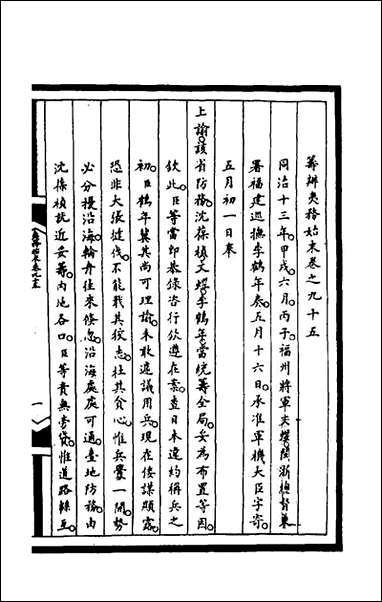 籌辦夷務始末卷之九十五
同治十三年。甲戌。六月。丙子。福州將軍文煜。閩浙總督兼
署福建巡撫李鶴年奏。五月十六日。承准軍機大臣字寄。
五月初一日奉
上諭。該省防務。沈葆楨。文煜。李鶴年。當統籌全局。妥為布置等因。
欽此。臣等當即恭錄咨行欽遵在案。查日本違約稱兵之
初。臣鶴年冀其尚可理諭。未敢遽議用兵。現在倭謀顯露。
恐非大張撻伐。不能戢其狡志。杜其貪心。惟兵釁一開。勢
必分擾沿海。輪舟往來倏忽。沿海處處可通。臺地防務。由
沈葆楨就近妥籌。內地各口。臣等責無旁貸。惟道路綿亙。
一